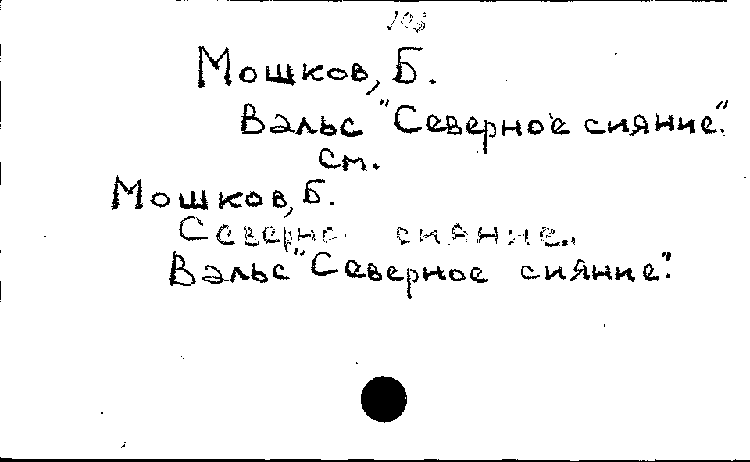 103
Мошков, Б.
Вальс "Северное сияние".
см.
Мошков, Б.
Северное сияние..
Вальс "Северное сияние".